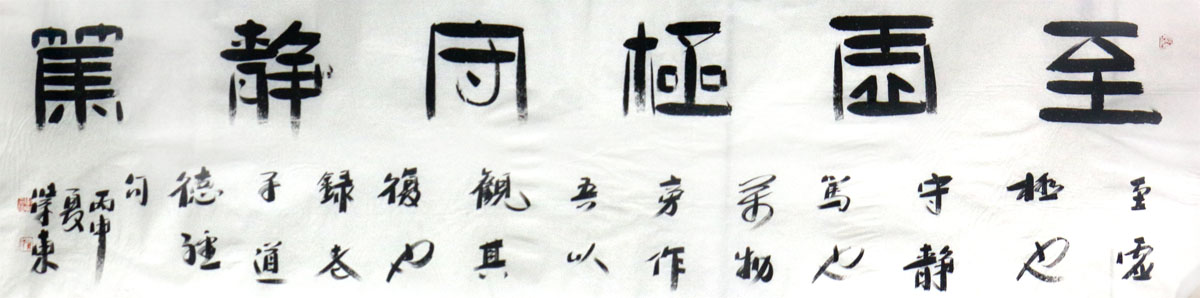 至虚極守静篤
至虚
極也
守静
篤也
萬物
旁作
吾以
觀其
復也
録老
子道
德經
句
丙申
夏